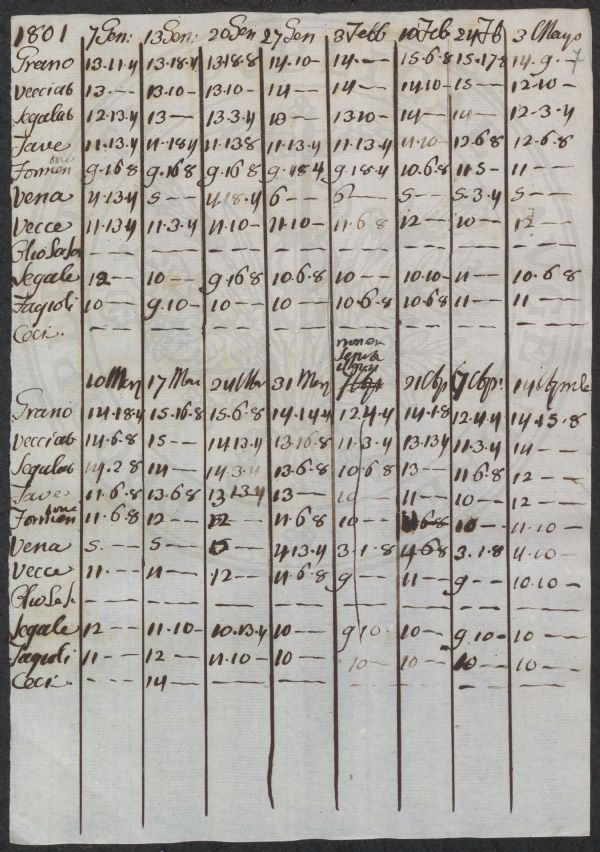 1801 7 Gen: 13 Gen: 20 Gen 27 Gen 3 Febb 10 Feb 24 Fb 3 Mayo
7
Grano 13.11.4 13.18.4 13.18.8 14.10- 14.-- 15.6.8 15.17.8 14.9.-
Vecciat 13.-- 13.10- 13.10- 14-- 14-- 14.10- 15-- 12.10-
Segalat 12.13.4 13-- 13.3.4 13-- 13.10- 14-- 14-- 12.3.4
Fave 11.13.4 11.18.4 11.13.8 11.13.4 11.13.4 11.10- 12.6.8 12.6.8
Formen tone 9.16.8 9.16.8 9.16.8 9.18.4 9.18.4 10.6.8 11.5- 11--
Vena 4.13.4 5-- 4.18.4 6-- 6-- 5-- 5.3.4 5--
Vecce 11.13.4 11.3.4 11.10- 11.10- 11.6.8 12-- 10-- 12--
--- --- --- --- --- --- --- ---
Segale 12-- 10-- 9.16.8 10.6.8 10-- 10.10- 11-- 10.6.8
Fagioli 10-- 9.10- 10-- 10-- 10.6.8 10.6.8 11-- 11--
Ceci. --- --- --- --- --- --- --- ---
10 Mar 17 Mar 24 Mar 31 Mar 21 Aprile 14 Aprile
Grano 14.18.4 15.16.8 15.6.8 14.14.4 12.4.4 14.1.8 12.4.4 14.13.8
Vecciat 14.6.8 15-- 14.13.4 13.16.8 11.3.4 13.13.4 11.3.4 14--
Segalat 14.2.8 14-- 14.3.4 13.6.8 10.6.8 13-- 11.6.8 12--
Fave 11.6.8 13.6.8 13.13.4 13-- 10-- 11-- 10-- 12--
Formen tone 11.6.8 12-- 12-- 11.6.8 10-- 11.6.8 10-- 11.10-
Vena 5.-- 5-- 5-- 4.13.4 3.1.8 4.6.8 3.1.8 4.10-
Vecce 11.-- 11-- 12-- 11.6.8 9-- 11-- 9-- 10.10-
--- --- --- --- --- --- --- ---
Segale 12-- 11.10- 10.13.4 10-- 9.10- 10-- 9.10- 10--
Fagioli 11-- 12-- 11.10- 10-- 10-- 10-- 10-- 10--
Ceci. --- 14-- --- --- --- --- --- ---